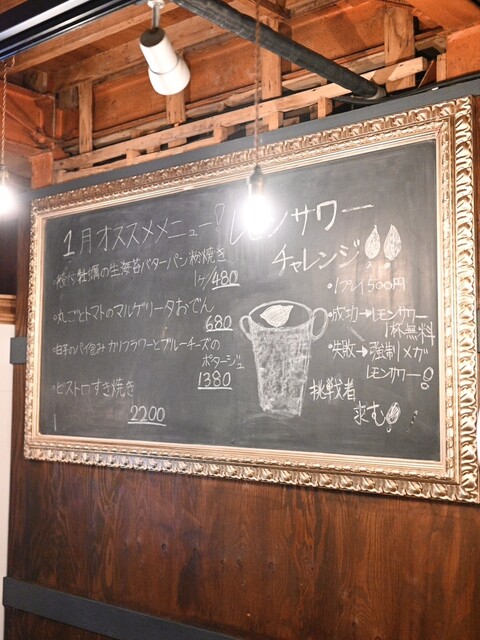 1月オススメメニュー!
牡蠣の生海苔バターパン粉焼き
1ヶ/480
・丸ごとトマトのマルゲリータおでん
680
・白子のパイ包み カリフラワーとブルーチーズの
ポタージュ
1380
・ビストロすき焼き
2200
レモンサワー
チャレンジ
・1プレイ500円
・成功→レモンサワー
1杯無料
・失敗→強制メガ
レモンサワー!
挑戦者
求む